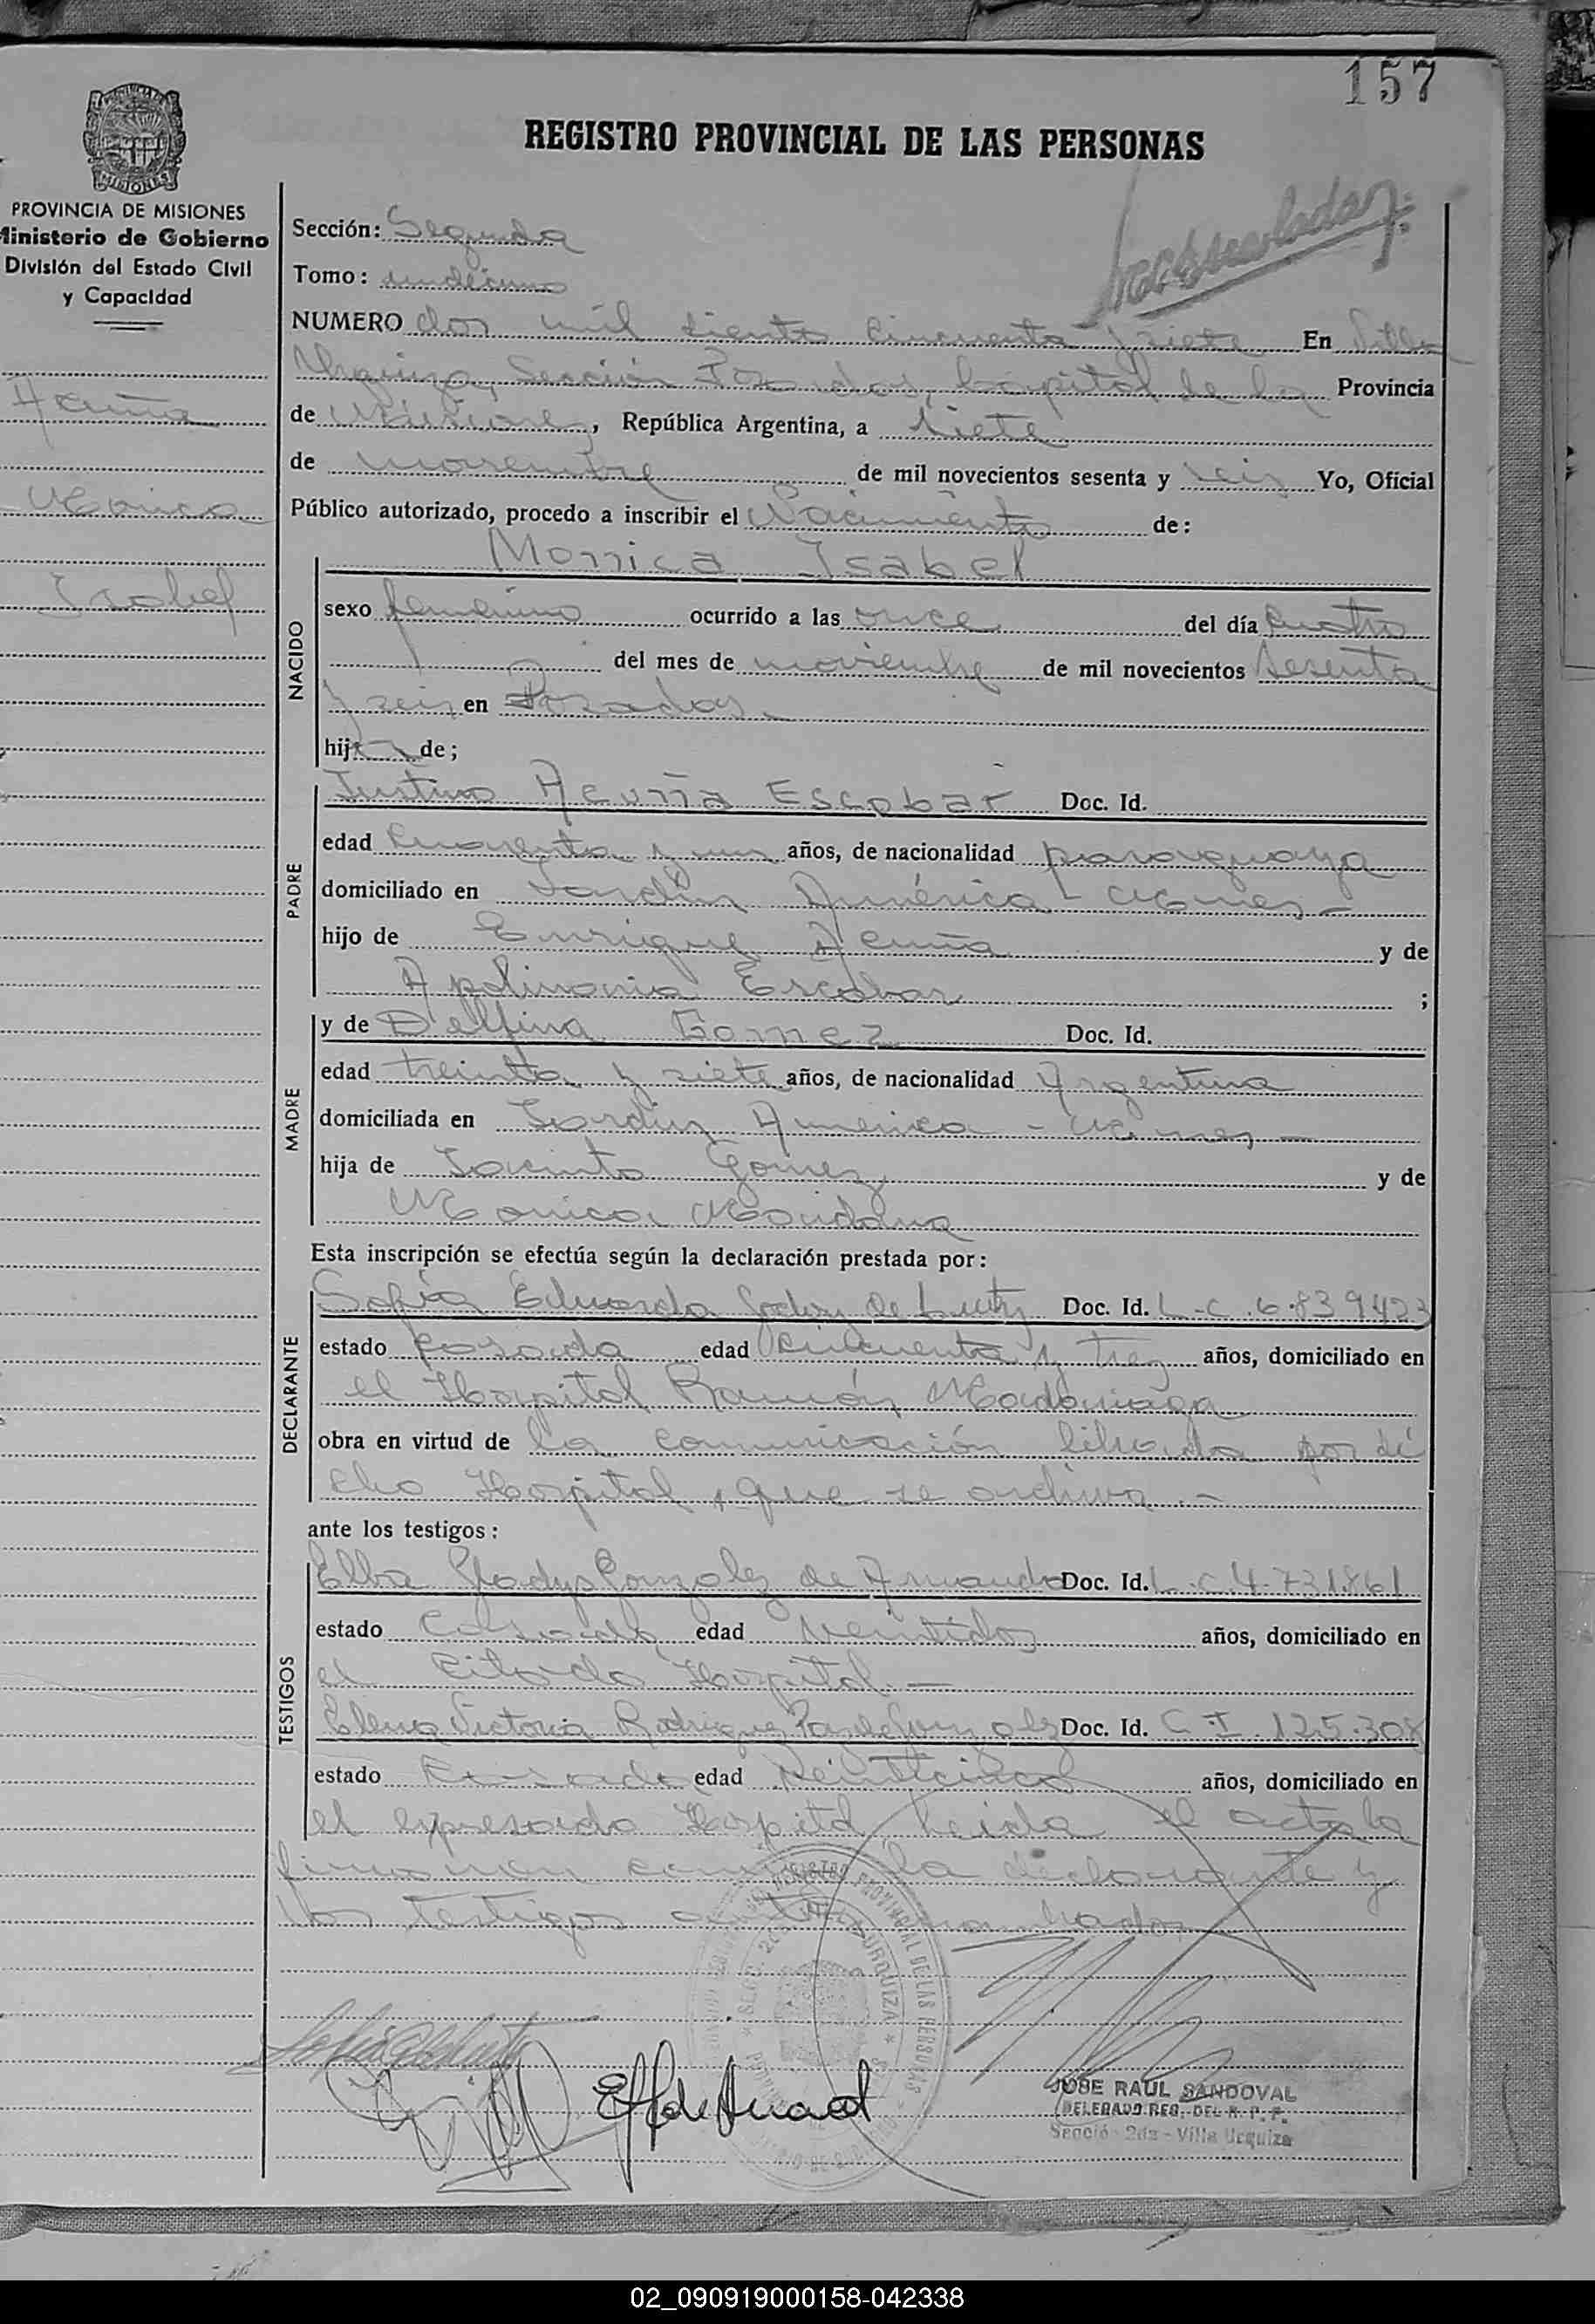 157
REGISTRO PROVINCIAL DE LAS PERSONAS
PROVINCIA DE MISIONES
Ministerio de Gobierno
División del Estado Civil
y Capacidad
Acuña
Monica
Isabel
Sección: Segunda
Tomo: undécimo
NUMERO dos mil ciento cincuenta y siete En Villa
Urquiza, Sección Posadas, Capital de la Provincia
de Misiones, República Argentina, a siete
de noviembre de mil novecientos sesenta y seis Yo, Oficial
Público autorizado, procedo a inscribir el Nacimiento de:
NACIDO
Monica Isabel
sexo femenino ocurrido a las once del día cuatro
del mes de noviembre de mil novecientos sesenta
y seis en Posadas
hija de;
PADRE
Justino Acuña Escobar Doc. Id.
edad cuarenta y un años, de nacionalidad paraguaya
domiciliado en Jardín América -
hijo de Enrique Acuña y de
Apolinaria Escobar ;
MADRE
y de Delfina Gomez Doc. Id.
edad treinta y siete años, de nacionalidad Argentina
domiciliada en Jardin America -
hija de Jacinto Gomez y de
Monica Maidana
Esta inscripción se efectúa según la declaración prestada por:
DECLARANTE
Sofia Eduarda Godoy de Doc. Id. L.C. 6.839423
estado casada edad cincuenta y tres años, domiciliado en
el Hospital Ramón Madariaga
obra en virtud de la comunicación librada por di
cho Hospital, que se archiva.-
ante los testigos:
TESTIGOS
Elba Gladys Gonzalez de Doc. Id. L.C. 4.731.861
estado casada edad veintidos años, domiciliado en
el citado Hospital.-
Elena Victoria Rodriguez Doc. Id. C.I. 125.308
estado casada edad veinticinco años, domiciliado en
el expresado Hospital leída el acta la
firman conmigo la declarante y
los testigos
REGISTRO PROVINCIAL DE LAS PERSONAS
JOSE RAUL SANDOVAL
DELEGADO REG. DEL R. P. P.
Secció 2da - Villa Urquiza
02_090919000158-042338